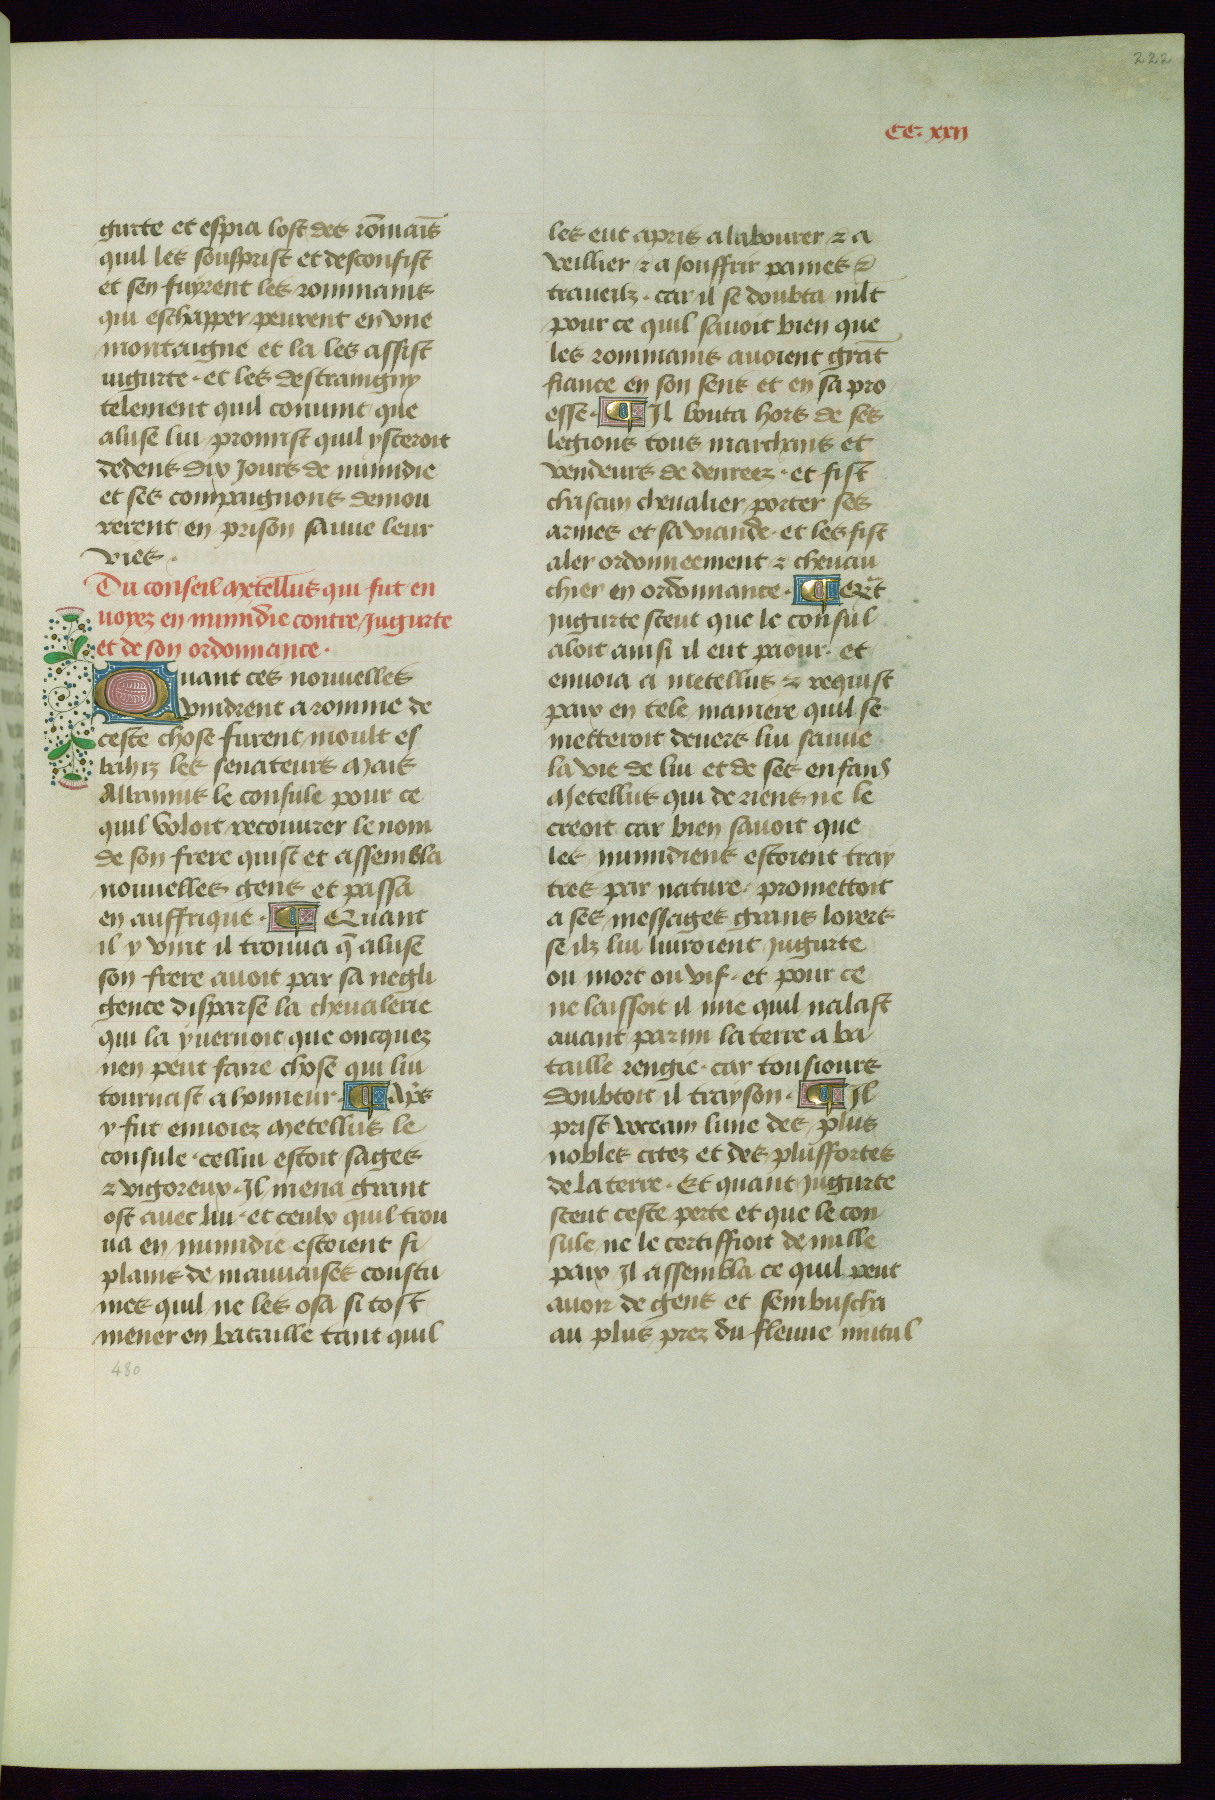 222
CC. xxii
gurte et espia lost des rōmaīs
quil les sousprist et desconfist
et sen fuyrent les rommains
qui eschapper peurent en vne
montaigne et la les assist
iugurte · et les destraingny
telement quil conuint que
aluse lui promist quil ysteroit
dedens dix Jours de numidie
et ses compaignons demou
rerent en prison sauue leur
vies ·
Du conseil metellus qui fut en
uoyez en numidie contre Jugurte
et de son ordonnance ·
Quant ces nouuelles
vindrent a romme de
ceste chose furent moult es
bahiz les senateurs Mais
Albanus le consule pour ce
quil voloit recouurer le nom
de son frere quist et assembla
nouuelles gens et passa
en auffrique · Et quant
il y vint il trouua q̄ aluse
son frere auoit par sa negli
gence disparse la cheualerie
qui la yuernoit que oncques
nen peut faire chose qui lui
tournast a honneur · Apѓs
y fut enuoiez Metellus le
consule · cellui estoit sages
⁊ vigoreux · Il mena grant
ost auec lui · et ceulx quil trou
ua en numidie estoient si
plains de mauuaises coustu
mes quil ne les osa si tost
mener en bataille tant quil
480
les eut apris a labourer ⁊ a
veillier ⁊ a souffrir paines ⁊
traueilz · car il se doubta mlt
pour ce quil sauoit bien que
les rommains auoient grāt
fiance en son sens et en sa pro
esse · Il bouta hors de ses
legions tous marchans et
vendeurs de denrees · et fist
chascun cheualier porter ses
armes et sa viande · et les fist
aler ordonneement ⁊ cheuau
chier en ordonnance · Et Qāt
jugurte sceut que le consul
aloit ainsi il eut paour · et
enuoia a metellus ⁊ requist
paix en tele maniere quil se
metteroit deuers lui sauue
la vie de lui et de ses enfans
Metellus qui de riens ne le
creoit car bien sauoit que
les numidiens estoient tray
tres par nature · promettoit
a ses messages grans lovers
se ilz lui liuroient jugurte
ou mort ou vif · et pour ce
ne laissoit il mie quil nalast
auant parmi la terre a ba
taille rengie · car tousiours
doubtoit il trayson · Il
prist vxeam lune des plus
nobles citez et des plusfortes
de la terre · Et quant jugurte
sceut ceste perte et que le con
sule ne le certiffioit de nulle
paix Il assembla ce quil peut
auoir de gens et sembuscha
au plus prez du fleuue mitul